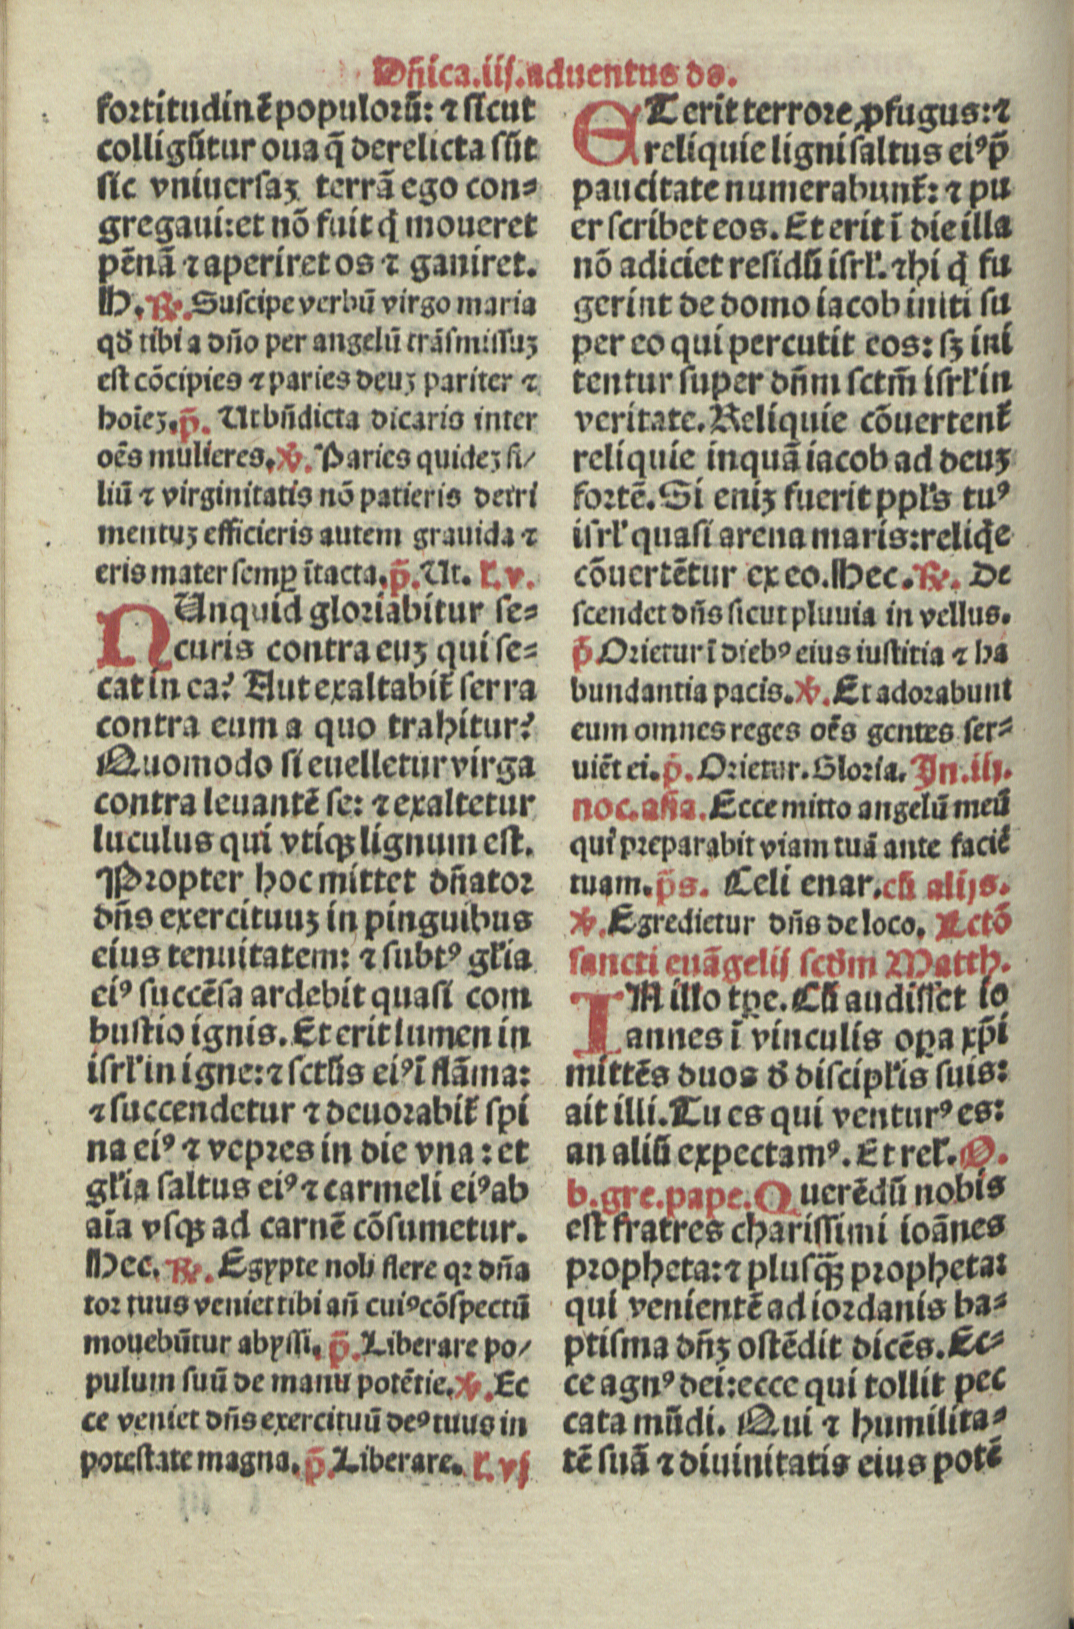 Dñica.iij.aduentus dñ.
fortitudinē populorū: ⁊ sicut
colligūtur oua q̄ derelicta sūt
sic vniuersaꝫ terrā ego con⸗
gregaui: et nō fuit q̇ moueret
pēnā ⁊ aperiret os ⁊ ganiret.
H. ℟. Suscipe verbū virgo maria
qđ tibi a dño per angelū trāsmissuꝫ
est cōcipies ⁊ paries deuꝫ pariter ⁊
hoīeꝫ. p̄. Ut bn̄dicta dicaris inter
oēs mulieres. ℣. Paries quideꝫ fi⸗
liū ⁊ virginitatis nō patieris detri
mentuꝫ efficieris autem grauida ⁊
eris mater semꝑ ītacta. p̄. Ut. ł. v.
NUnquid gloriabitur se⸗
curis contra euꝫ qui se⸗
cat in ea? Aut exaltabit̄ serra
contra eum a quo trahitur?
Quomodo si euelletur virga
contra leuantē se: ⁊ exaltetur
luculus qui vtiqꝫ lignum est.
Propter hoc mittet dn̄ator
dn̄s exercituuꝫ in pinguibus
eius tenuitatem: ⁊ subtꝰ głia
eiꝰ succēsa ardebit quasi com
bustio ignis. Et erit lumen in
isrł in igne: ⁊ sctūs eiꝰ ī flāma:
⁊ succendetur ⁊ deuorabit̄ spi
na eiꝰ ⁊ vepres in die vna: et
głia saltus eiꝰ ⁊ carmeli eiꝰ ab
aīa vsqꝫ ad carnē cōsumetur.
Hec. ℟. Egypte noli flere qꝛ dn̄a
tor tuus veniet tibi añ cuiꝰ cōspectū
mouebūtur abyssi. p̄. Liberare po⸗
pulum suū de manu potētie. ℣. Ec
ce veniet dn̄s exercituū deꝰ tuus in
potestate magna. p̄. Liberare. ł. vj
ET erit terrore ꝓfugus: ⁊
reliquie ligni saltus eiꝰ p̄
paucitate numerabunt̄: ⁊ pu
er scribet eos. Et erit ī die illa
nō adiciet residuū isrł. ⁊ hi q̇ fu
gerint de domo iacob initi su
per eo qui percutit eos: sꝫ ini
tentur super dn̄m sctm̄ isrł in
veritate. Reliquie cōuertent̄
reliquie inquā iacob ad deuꝫ
fortē. Si eniꝫ fuerit ppłs tuꝰ
isrł quasi arena maris: reliq̇e
cōuertētur ex eo. Hec. ℟. De
scendet dn̄s sicut pluuia in vellus.
p̄ Orietur ī diebꝰ eius iustitia ⁊ ha
bundantia pacis. ℣. Et adorabunt
eum omnes reges oēs gentes ser⸗
uiēt ei. p̄. Orietur. Gloria. In. iij.
noc. añā. Ecce mitto angelū meū
qui preparabit viam tuā ante faciē
tuam. p̄s. Celi enar. cū alijs.
℣. Egredietur dn̄s de loco. Lctō
sancti euāgelij scđm Matth.
IN illo tpe. Cū audisset io
annes ī vinculis oꝑa xp̄i
mittēs duos đ discipłis suis:
ait illi. Tu es qui venturꝰ es:
an aliū expectamꝰ. Et reł. O.
b. gre. pape. Querēdū nobis
est fratres charissimi ioānes
propheta: ⁊ plusq̄ꝫ propheta:
qui venientē ad iordanis ba⸗
ptisma dn̄ꝫ ostēdit dicēs. Ec⸗
ce agnꝰ dei: ecce qui tollit pec
cata mūdi. Qui ⁊ humilita⸗
tē suā ⁊ diuinitatis eius potē